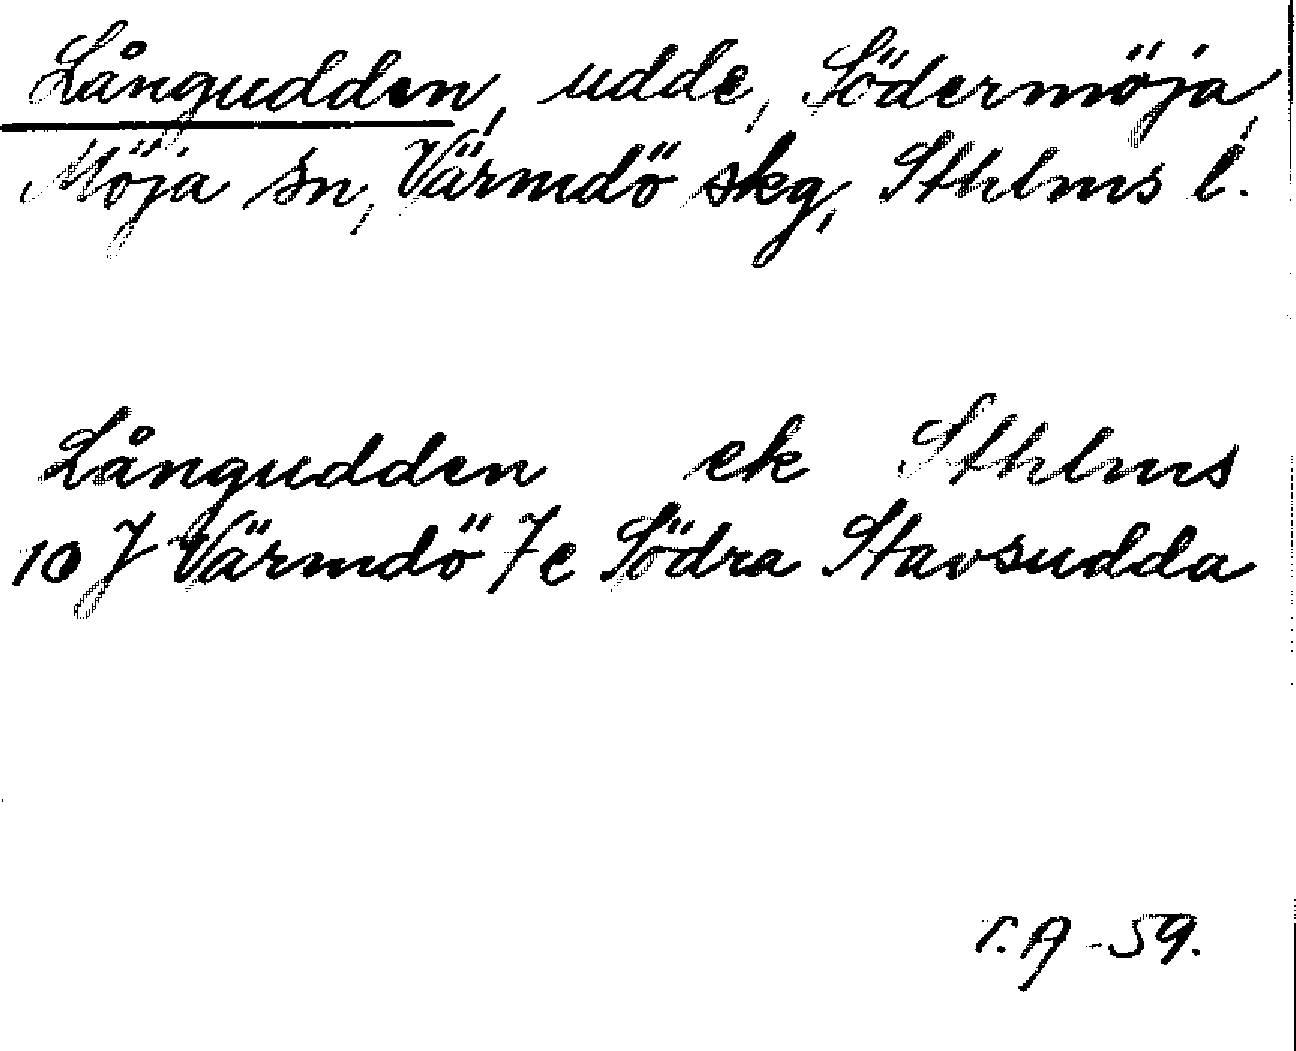 Långudden, udde, Södermöja,
Möja sn, Värmdö skg, Sthlms l.
Långudden ek Sthlms
10 J Värmdö 7e Södra Stavsudda
T.A -59.